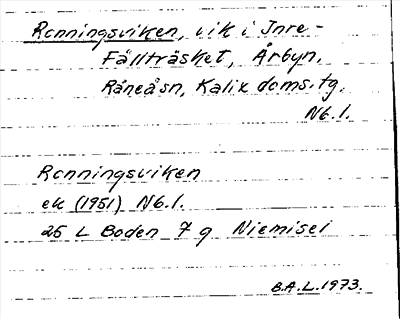 Ronningsviken, vik i Inre-
Fällträsket, Årbyn,
Råneåsn, Kalix doms.tg.
Nb.l.
Ronningsviken
ek (1951) Nb.l.
25 L Boden 7 g Niemisel
B.A.L. 1973.